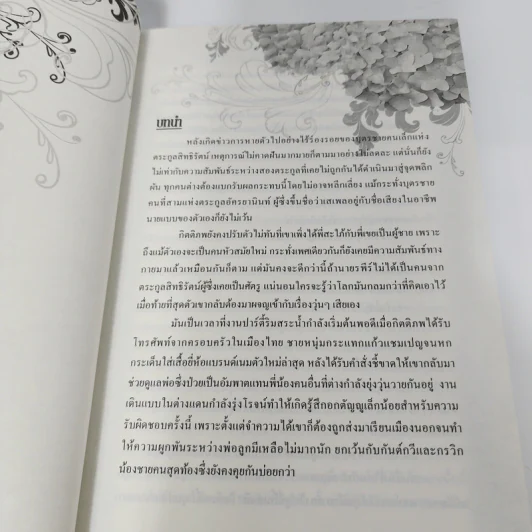 บทนำ
หลังเกิดข่าวการหายตัวไปอย่างไร้ร่องรอยของบุตรชายคนเล็กแห่ง
ตระกูลสิทธิรัตน์ เหตุการณ์ไม่คาดฝันมากมายก็ตามมาอย่างไม่ลดละ และนั่นก็ยัง
ไม่เท่ากับความสัมพันธ์ระหว่างสองตระกูลที่เคยไม่ถูกกันได้ดำเนินมาสู่จุดพลิก
ผัน ทุกคนต่างต้องแบกรับผลกระทบนี้โดยไม่อาจหลีกเลี่ยง แม้กระทั่งบุตรชาย
คนที่สามแห่งตระกูลอัครธานินท์ ผู้ซึ่งขึ้นชื่อว่าแสเพลอยู่กับชื่อเสียงในอาชีพ
นายแบบของตัวเองก็ยังไม่เว้น
กิตติภพยังคงปรับตัวไม่ทันที่เขาเพิ่งได้พี่สะใภ้กับพี่เขยเป็นผู้ชาย เพราะ
ถึงแม้ตัวเองจะเป็นคนหัวสมัยใหม่ กระทั่งเพศเดียวกันก็ยังเคยมีความสัมพันธ์ทาง
กายมาแล้วเหมือนกันก็ตาม แต่มันคงจะดีกว่านี้ถ้านายรพีร์ไม่ได้เป็นคนจาก
ตระกูลสิทธิรัตน์ผู้ซึ่งเคยเป็นศัตรู แน่นอนใครจะรู้ว่าโลกมันกลมกว่าที่คิดเอาไว้
เมื่อท้ายที่สุดตัวเขากลับต้องมาผจญเข้ากับเรื่องวุ่นๆ เสียเอง
มันเป็นเวลาที่งานปาร์ตี้ริมสระน้ำกำลังเริ่มต้นพอดีเมื่อกิตติภพได้รับ
โทรศัพท์จากครอบครัวในเมืองไทย ชายหนุ่มกระแทกแก้วแชมเปญจนหก
กระเด็นใส่เสื้อยี่ห้อแบรนด์เนมตัวใหม่ล่าสุด หลังได้รับคำสั่งชี้ขาดให้เขากลับมา
ช่วยดูแลพ่อซึ่งป่วยเป็นอัมพาตแทนพี่น้องคนอื่นที่ต่างกำลังยุ่งวุ่นวายกันอยู่ งาน
เดินแบบในต่างแดนกำลังรุ่งโรจน์ทำให้เกิดรู้สึกอกตัญญูเล็กน้อยสำหรับความ
รับผิดชอบครั้งนี้ เพราะตั้งแต่จำความได้เขาก็ต้องถูกส่งมาเรียนเมืองนอกจนทำ
ให้ความผูกพันระหว่างพ่อลูกมีเหลือไม่มากนัก ยกเว้นกับกันต์กวีและกรวิก
น้องชายคนสุดท้องซึ่งยังคงคุยกันบ่อยกว่า